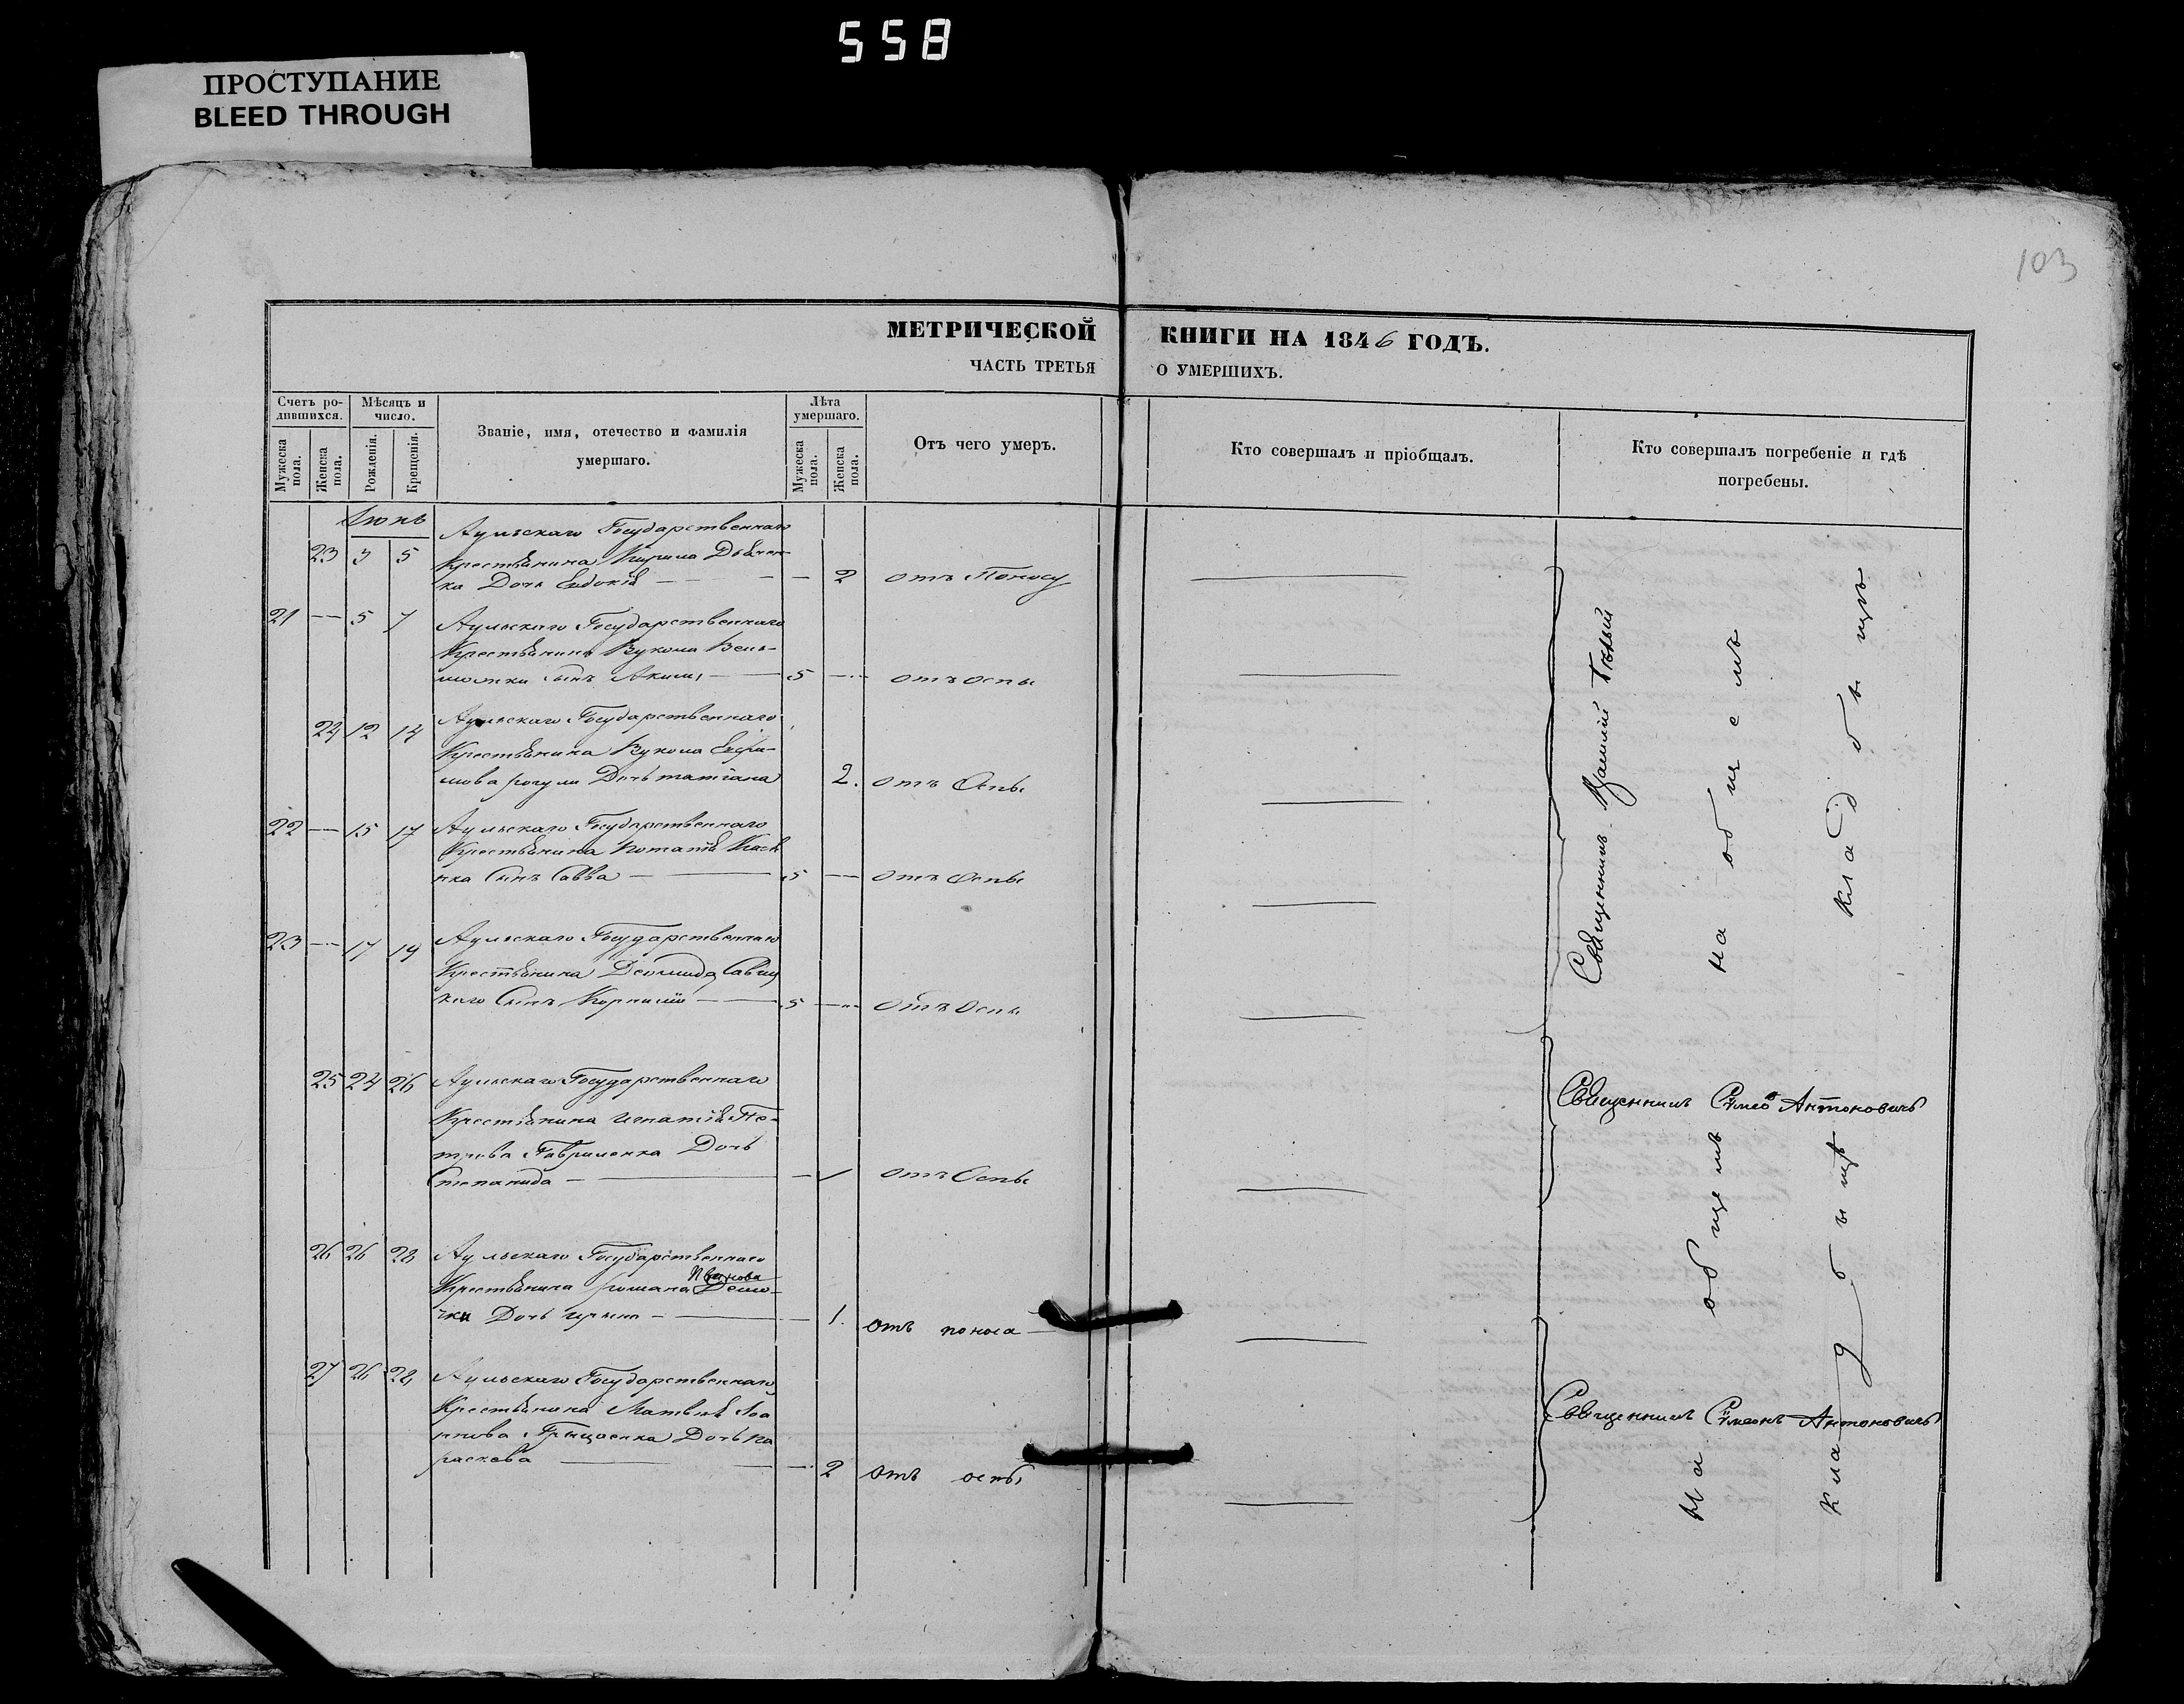 558
ПРОСТУПАНИЕ
BLEED THROUGH
103
МЕТРИЧЕСКОЙ КНИГИ НА 1846 ГОДЪ.
ЧАСТЬ ТРЕТЬЯ О УМЕРШИХЪ.
Счетъ ро-
дившихся.
Мѣсяцъ и
число.
Званіе, имя, отечество и фамилія
умершаго.
Лѣта
умершаго.
Отъ чего умеръ.
Кто совершалъ и пріобщалъ.
Кто совершалъ погребеніе и гдѣ
погребены.
Мужеска
пола.
Женска
пола.
Рожденія.
Крещенія.
Мужеска
пола.
Женска
пола.
Іюнь
Аульскаго Государственнаго
23 3 5 Крестьянина Кирила
ка Дочь Евдокія — — 2 отъ Поносу
21 — 5 7 Аульскаго Государственнаго
Крестьянина Вукола Вель-
сынъ Акимъ — 5 — отъ оспы
24 12 14 Аульскаго Государственнаго
Крестьянина Вукола Евфи-
мова Дочь татіана 2. отъ Оспы
22 — 15 17 Аульскаго Государственнаго
Крестьянина
нка Сынъ Савва — 5 — отъ Оспы
23 — 17 19 Аульскаго Государственнаго
Крестьянина Деомида Савиц
каго Сынъ Корнилій — 5 — отъ Оспы
25 24 26 Аульскаго Государственнаго
Крестьянина игнатія Пе-
трова Гавриленка Дочь
Степанида — — 1 отъ Оспы
26 26 28 Аульскаго Государственнаго
Иванова
Крестьянина романа Демо-
чки Дочь — — 1. отъ поноса
27 26 28 Аульскаго Государственнаго
Крестьянина Матвѣя
Грищенка Дочь па
раскева — — 2 отъ оспы
Священникъ
на общемъ
кладбищѣ
Священникъ Сѵмео Антоновичъ
Священникъ Сѵмеонъ Антоновичъ
На общемъ
кладбищѣ